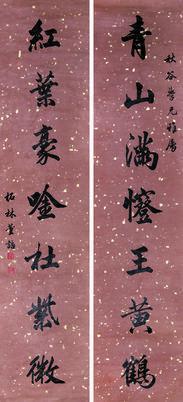 秋谷學兄雅屬
青山滿燈王黃鶴
紅葉豪唫社紫微
柘林董誥